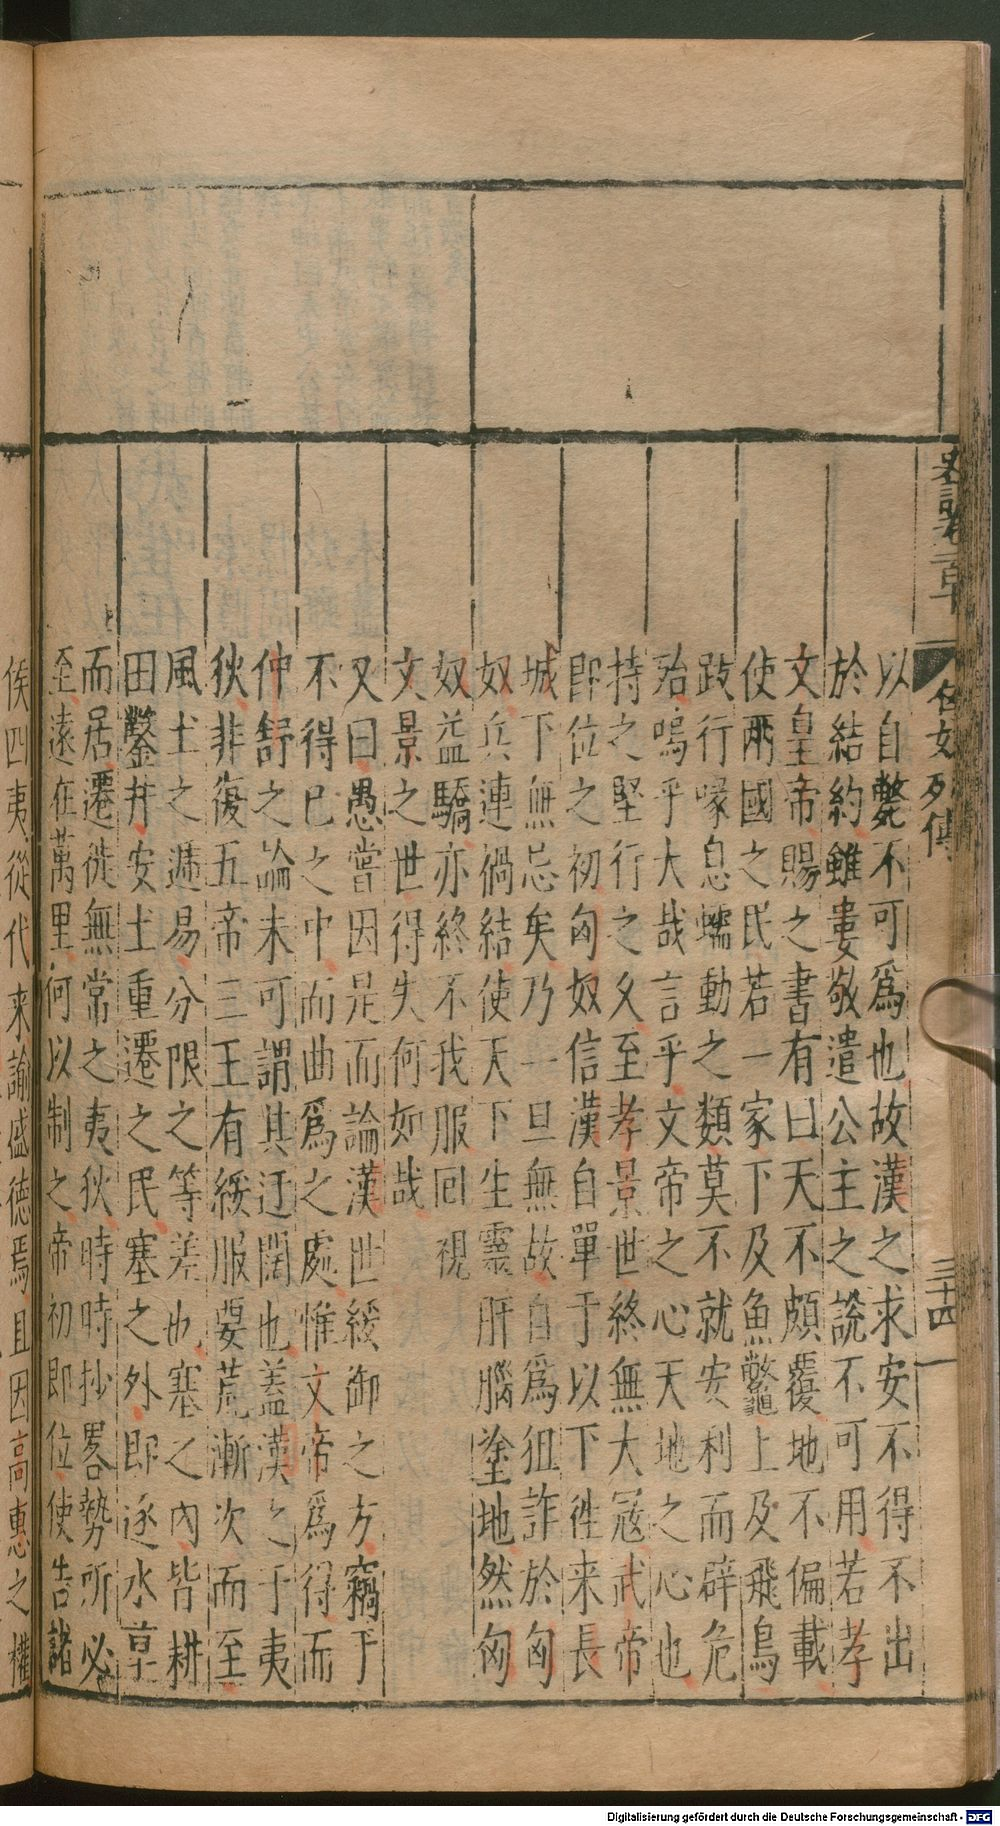 名女列傳
三十四
以自斃不可爲也故漢之求安不得不出
於結約雖婁敬遣公主之說不可用若孝
文皇帝賜之書有曰天不頗覆地不偏載
使兩國之民若一家下及魚鼈上及飛鳥
跂行喙息蠕動之類莫不就安利而辟危
殆嗚乎大哉言乎文帝之心天地之心也
持之堅行之久至孝景世終無大寇武帝
即位之初匈奴信漢自單于以下徃来長
城下無忌矣乃一旦無故自爲狙詐於匈
奴兵連禍結使天下生靈肝腦塗地然匈
奴益驕亦終不我服回視
文景之世得失何如哉
又曰愚嘗因是而論漢世綏御之方竊于
不得已之中而曲爲之處惟文帝爲得而
仲舒之論未可謂其迂闊也蓋漢之于夷
狄非復五帝三王有綏服要荒漸次而至
風土之遞易分限之等差也塞之內皆耕
田鑿井安土重遷之民塞之外即逐水草
而居遷徙無常之夷狄時時抄畧勢所必
至遠在萬里何以制之帝初即位使告諸
侯四夷從代来諭盛德焉且因高惠之權
Digitalisierung gefördert durch die Deutsche Forschungsgemeinschaft - DFG